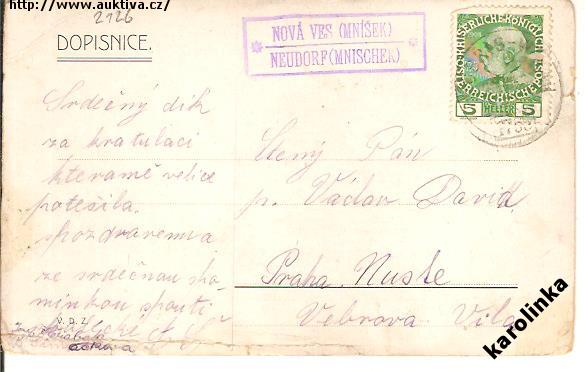 http://www.auktiva.cz/
2126
DOPISNICE.
NOVÁ VES (MNÍŠEK)
NEUDORF (MNISCHEK)
KAISERLICHE KÖNIGLICHE
ÖSTERREICHISCHE POST
5 HELLER 5
Srdečný dík
za kratulaci
která mě velice
potešila.
s pozdravem a
ze srdečnau
Ctený Pán
p. Václav David
Praha Nusle
Vebrova Vila
V. D. Z.
karolinka